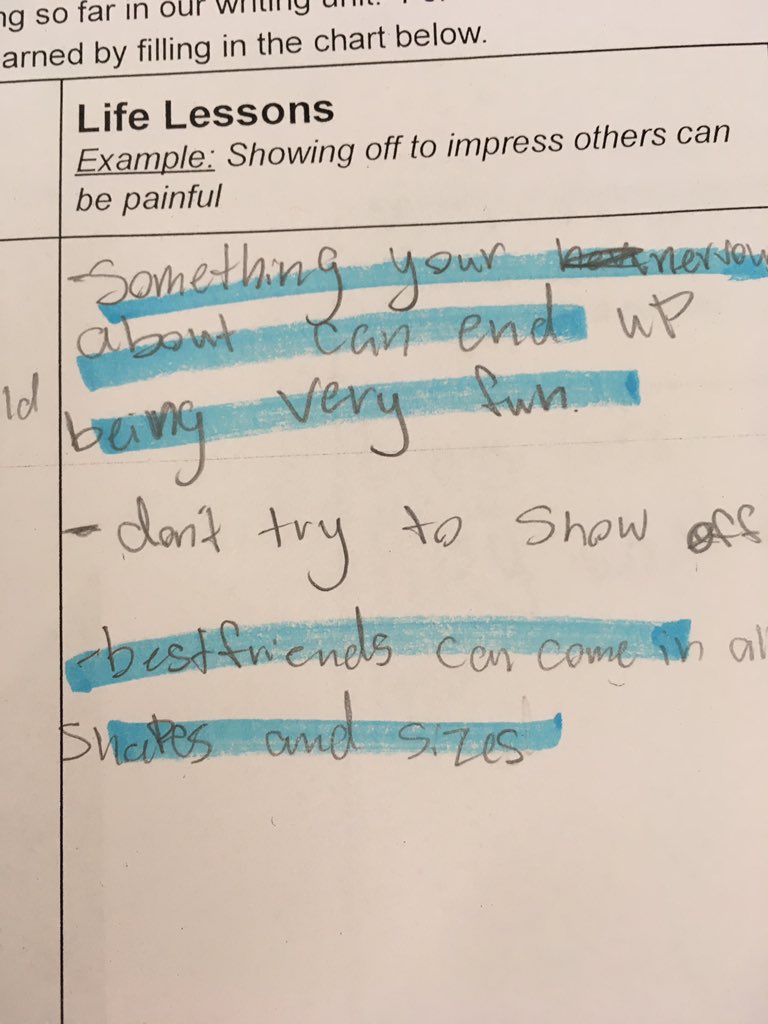 ng so far in our writing unit.
arned by filling in the chart below.
Life Lessons
Example: Showing off to impress others can
be painful
-Something your nervou
about can end up
being very fun.
ld
- don't try to show off
-bestfriends can come in all
Shapes and sizes